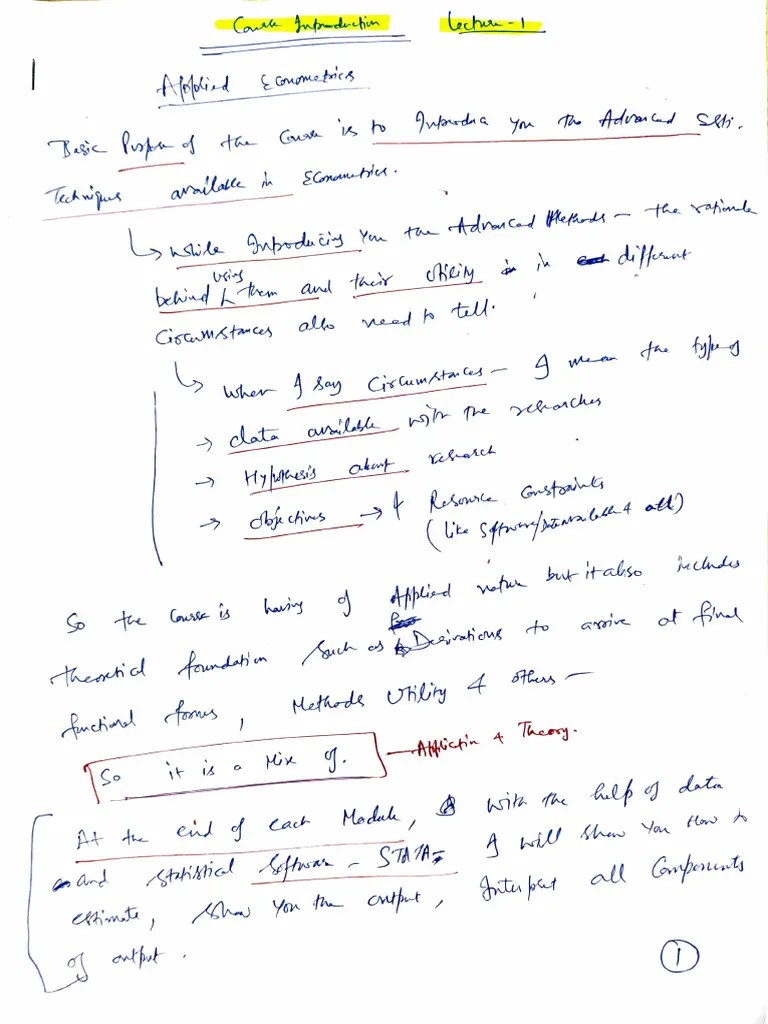 Course Introduction Lecture - 1
Applied Econometrics
Basic Purpose of the Course is to Introduce you the Advanced
Techniques available in Econometrics.
While Introducing you the Advanced Methods - the rationale
behind using them and their Utility in different
Circumstances also need to tell.
When I say Circumstances - I mean the type of
→ data available with the researches
→ Hypothesis about research
→ objectives → & Resource constraints
(like Software/ & all)
So the Course is having of Applied nature but it also includes
theoretical foundation such as Derivations to arrive at final
functional forms, Methods Utility & others -
So it is a Mix of. - Application & Theory.
At the end of each Module, with the help of data
and statistical Software - STATA - I will show you How to
estimate, show you the output, Interpret all Components
of output.
1